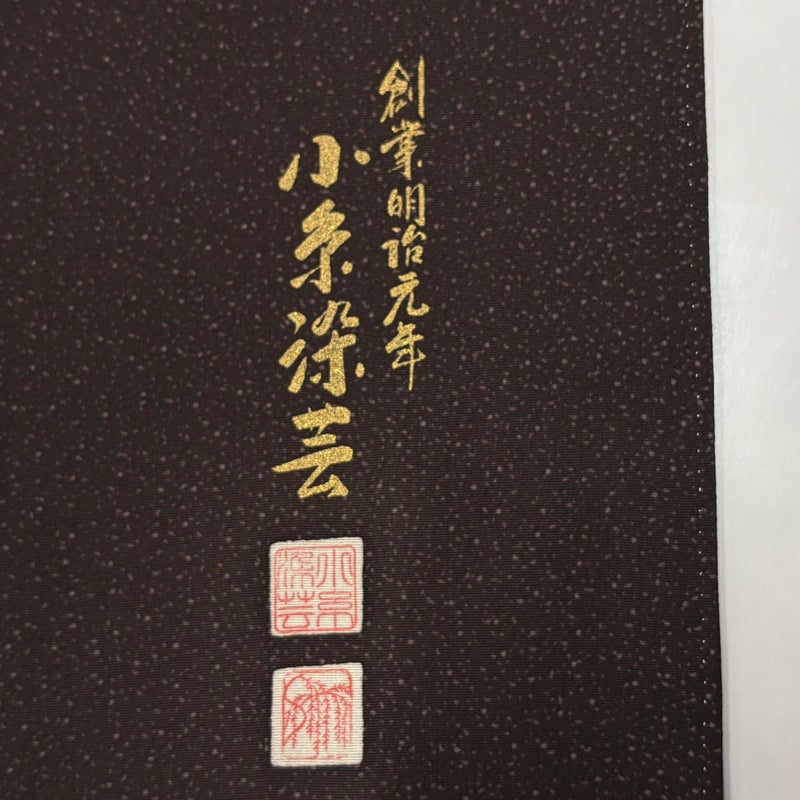 創業明治元年
小糸染芸
小糸染芸